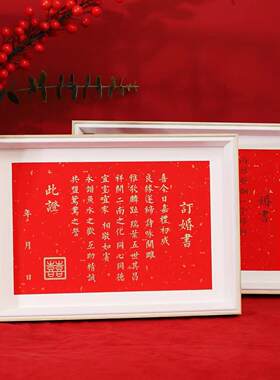 訂婚書
喜今日嘉禮初成
良緣遂締 詩咏關雎
雅歌麟趾 瑞葉五世其昌
祥開二南之化 同心同德
宜室宜家 相敬如賓
永諧魚水之歡 互助精誠
共盟鴛鴦之誓
此證
年 月 日
囍
婚書